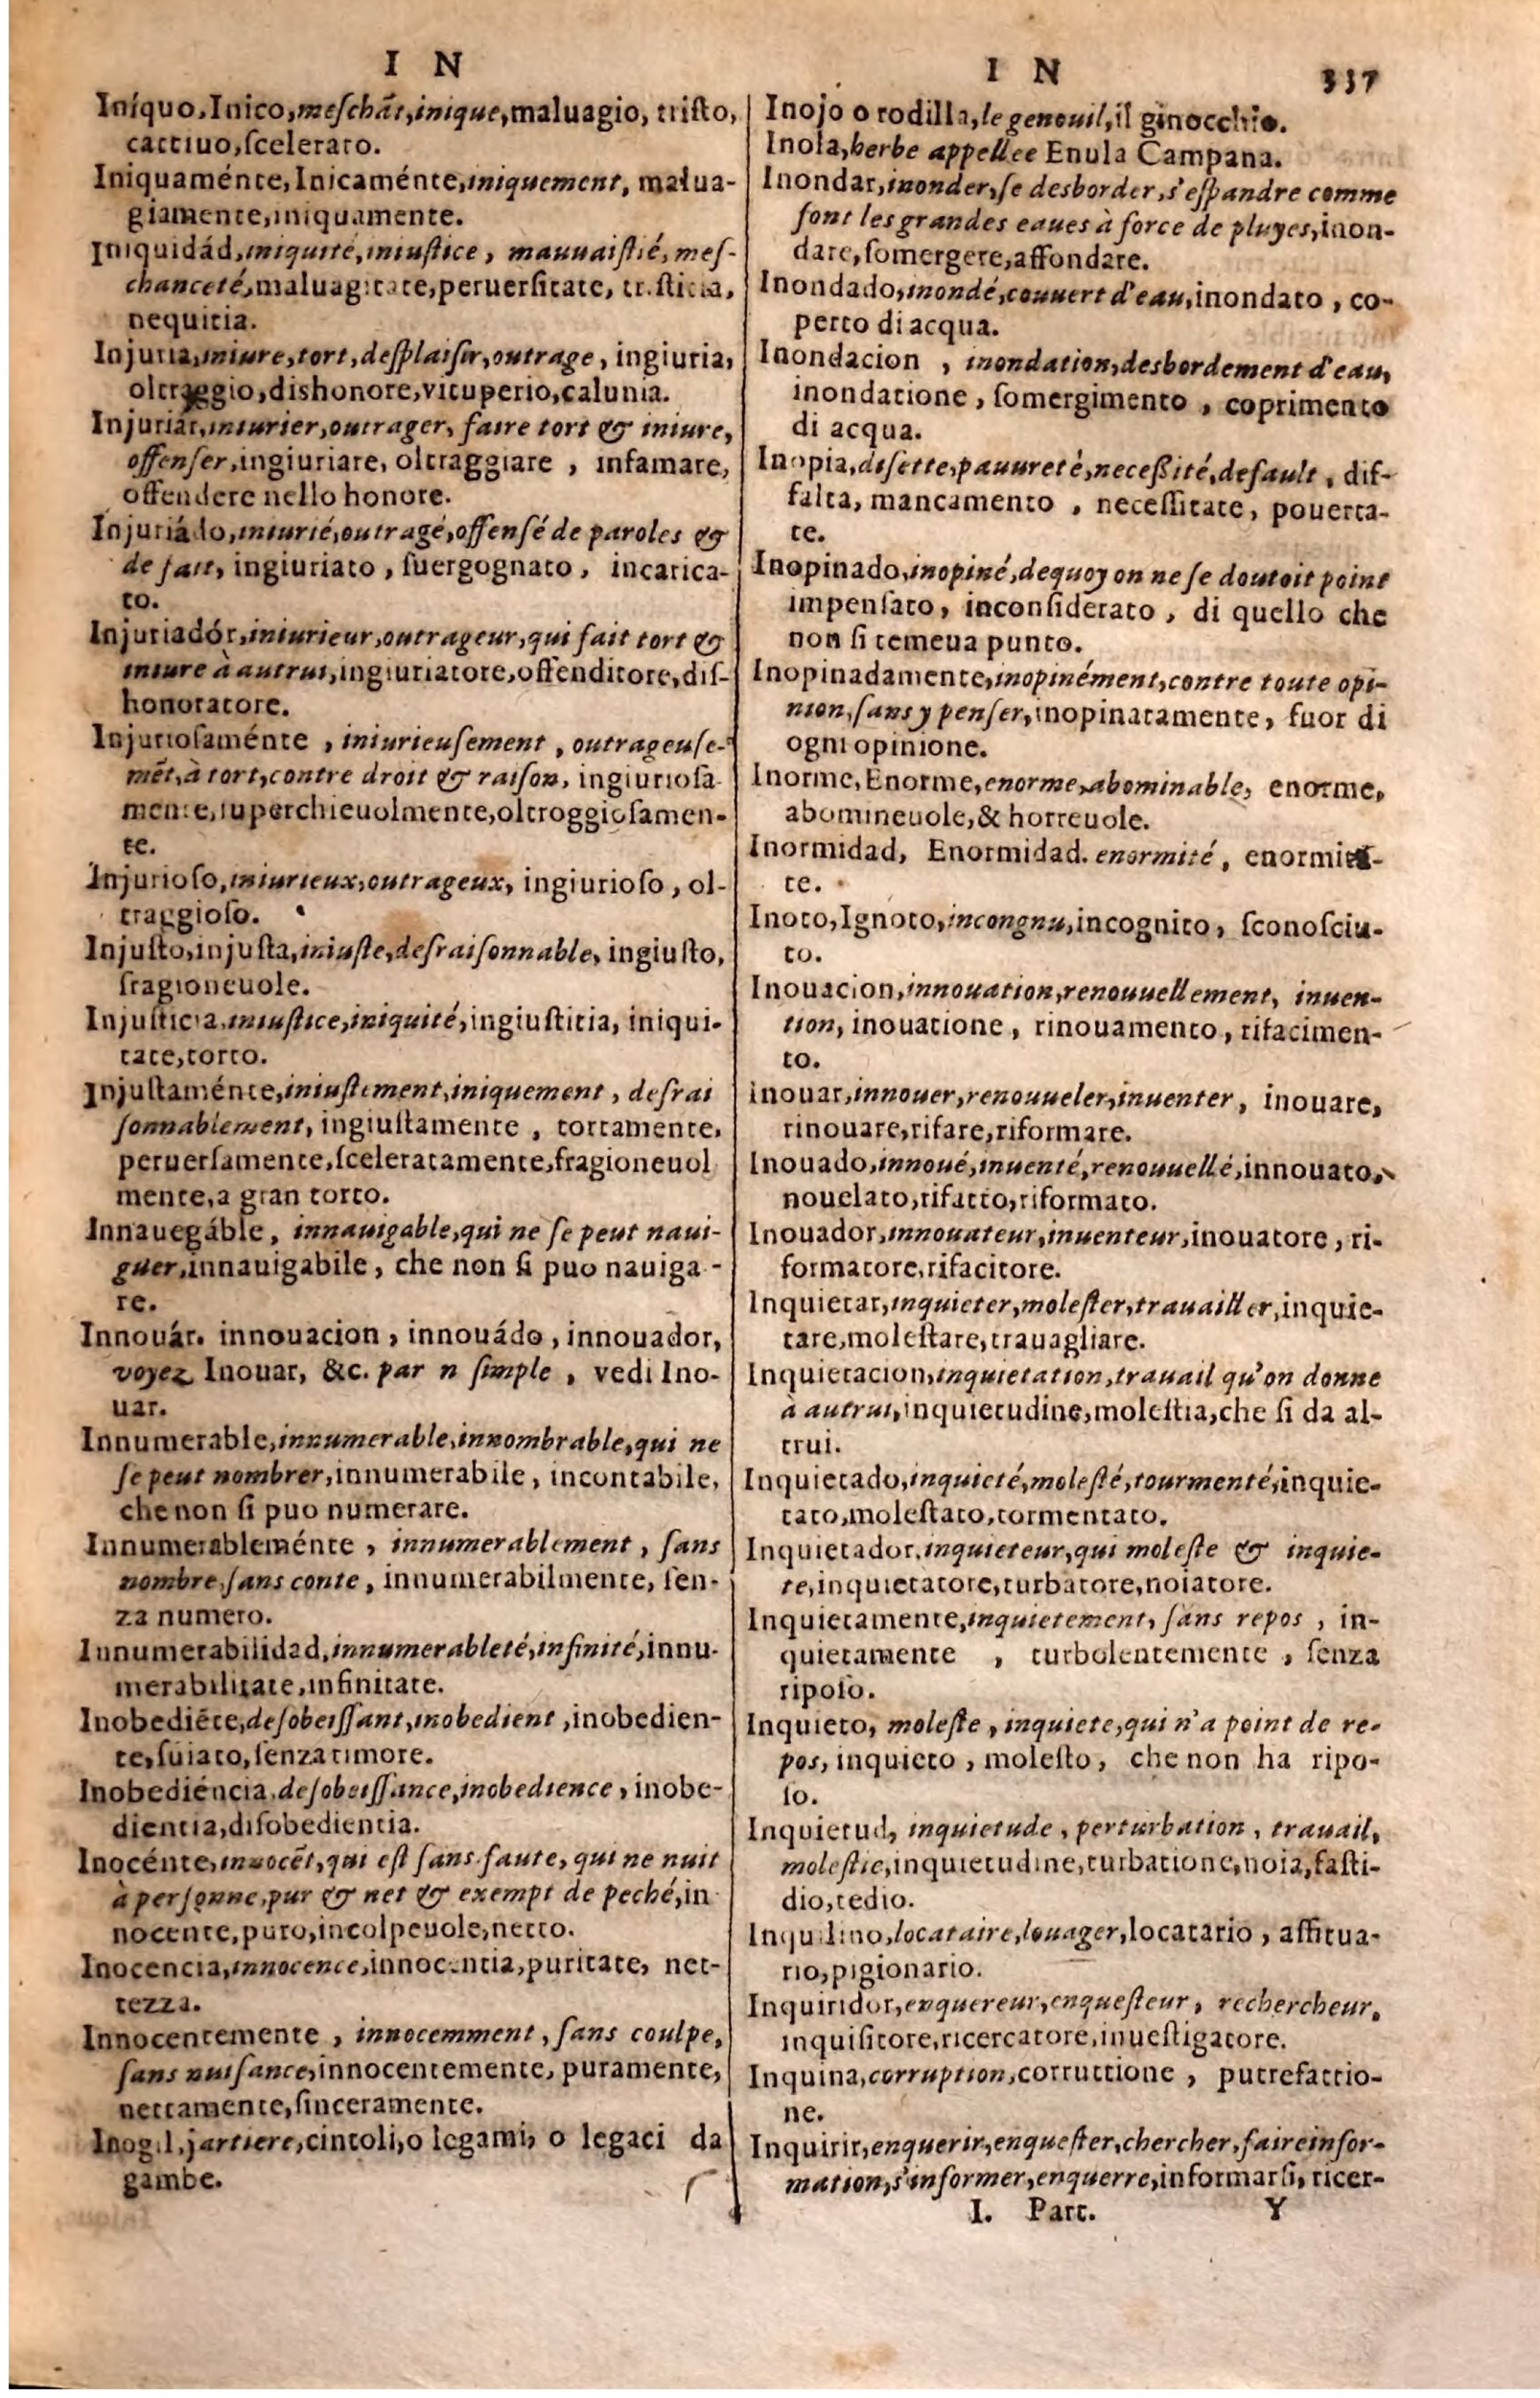 I N
Iníquo, Inico, meſchãt, inique, maluagio, triſto,
cattiuo, ſcelerato.
Iniquaménte, Inicaménte, iniquement, malua-
giamente, iniquamente.
Iniquidád, iniquité, iniuſtice, mauuaiſtié, meſ-
chanceté, maluagitate, peruerſitate, triſticia,
nequitia.
Injuria, iniure, tort, deſplaiſir, outrage, ingiuria,
oltraggio, dishonore, vituperio, calunia.
Injuriár, iniurier, outrager, faire tort & iniure,
offenſer, ingiuriare, oltraggiare, infamare,
offendere nello honore.
Injuriádo, iniurié, outragé, offenſé de paroles &
de fait, ingiuriato, ſuergognato, incarica-
to.
Injuriadór, iniurieur, outrageur, qui fait tort &
iniure à autrui, ingiuriatore, offenditore, diſ-
honoratore.
Injurioſaménte, iniurieuſement, outrageuſe-
mẽt, à tort, contre droit & raiſon, ingiurioſa
mente, ſuperchieuolmente, oltroggioſamen-
te.
Injurioſo, iniurieux, outrageux, ingiurioſo, ol-
traggioſo.
Injuſto, injuſta, iniuſte, deſraiſonnable, ingiuſto,
ſragioneuole.
Injuſticia, iniuſtice, iniquité, ingiuſtitia, iniqui-
tate, torto.
Injuſtaménte, iniuſtement, iniquement, deſrai
ſonnablement, ingiuſtamente, tortamente,
peruerſamente, ſceleratamente, ſragioneuol
mente, a gran torto.
Innauegáble, innauigable, qui ne ſe peut naui-
guer, innauigabile, che non ſi puo nauiga-
re.
Innouár. innouacion, innouádo, innouador,
voyez Inouar, &c. par n ſimple, vedi Ino-
uar.
Innumerable, innumerable, innombrable, qui ne
ſe peut nombrer, innumerabile, incontabile,
che non ſi puo numerare.
Innumerableménte, innumerablement, ſans
nombre, ſans conte, innumerabilmente, ſen-
za numero.
Innumerabilidad, innumerableté, infinité, innu-
merabilitate, infinitate.
Inobediẽte, deſobeiſſant, inobedient, inobedien-
te, ſuiato, ſenza timore.
Inobediéncia, deſobeiſſance, inobedience, inobe-
dientia, diſobedientia.
Inocénte, innocẽt, qui eſt ſans faute, qui ne nuit
à perſonne, pur & net & exempt de peché, in
nocente, puro, incolpeuole, netto.
Inocencia, innocence, innocentia, puritate, net-
tezza.
Innocentemente, innocemment, ſans coulpe,
ſans nuiſance, innocentemente, puramente,
nettamente, ſinceramente.
Inogil, jartiere, cintoli, o legami, o legaci da
gambe.
I N 337
Inojo o rodilla, le genouil, il ginocchio.
Inola, herbe appellee Enula Campana.
Inondar, inonder, ſe desborder, s'eſpandre comme
font les grandes eaues à force de pluyes, inon-
dare, ſomergere, affondare.
Inondado, inondé, couuert d'eau, inondato, co-
perto di acqua.
Inondacion, inondation, desbordement d'eau,
inondatione, ſomergimento, coprimento
di acqua.
Inopia, diſette, pauureté, neceßité, default, dif-
falta, mancamento, neceſſitate, pouerta-
te.
Inopinado, inopiné, dequoy on ne ſe doutoit point
impenſato, inconſiderato, di quello che
non ſi temeua punto.
Inopinadamente, inopinément, contre toute opi-
nion, ſans y penſer, inopinatamente, fuor di
ogni opinione.
Inorme, Enorme, enorme, abominable, enorme,
abomineuole, & horreuole.
Inormidad, Enormidad. enormité, enormita-
te.
Inoto, Ignoto, incongnu, incognito, ſconoſciu-
to.
Inouacion, innouation, renouuellement, inuen-
tion, inouatione, rinouamento, rifacimen-
to.
Inouar, innouer, renouueler, inuenter, inouare,
rinouare, rifare, riformare.
Inouado, innoué, inuenté, renouuellé, innouato,
nouelato, rifatto, riformato.
Inouador, innouateur, inuenteur, inouatore, ri-
formatore, rifacitore.
Inquietar, inquieter, moleſter, trauailler, inquie-
tare, moleſtare, trauagliare.
Inquietacion, inquietation, trauail qu'on donne
à autrui, inquietudine, moleſtia, che ſi da al-
trui.
Inquietado, inquieté, moleſté, tourmenté, inquie-
tato, moleſtato, tormentato.
Inquietador, inquieteur, qui moleſte & inquie-
te, inquietatore, turbatore, noiatore.
Inquietamente, inquietement, ſans repos, in-
quietamente, turbolentemente, ſenza
ripoſo.
Inquieto, moleſte, inquiete, qui n'a point de re-
pos, inquieto, moleſto, che non ha ripo-
ſo.
Inquietud, inquietude, perturbation, trauail,
moleſtie, inquietudine, turbatione, noia, faſti-
dio, tedio.
Inquilino, locataire, louager, locatario, affitua-
rio, pigionario.
Inquiridor, enquereur, enqueſteur, rechercheur,
inquiſitore, ricercatore, inueſtigatore.
Inquina, corruption, corruttione, putrefattio-
ne.
Inquirir, enquerir, enqueſter, chercher, faire infor-
mation, s'informer, enquerre, informarſi, ricer-
I. Part. Y